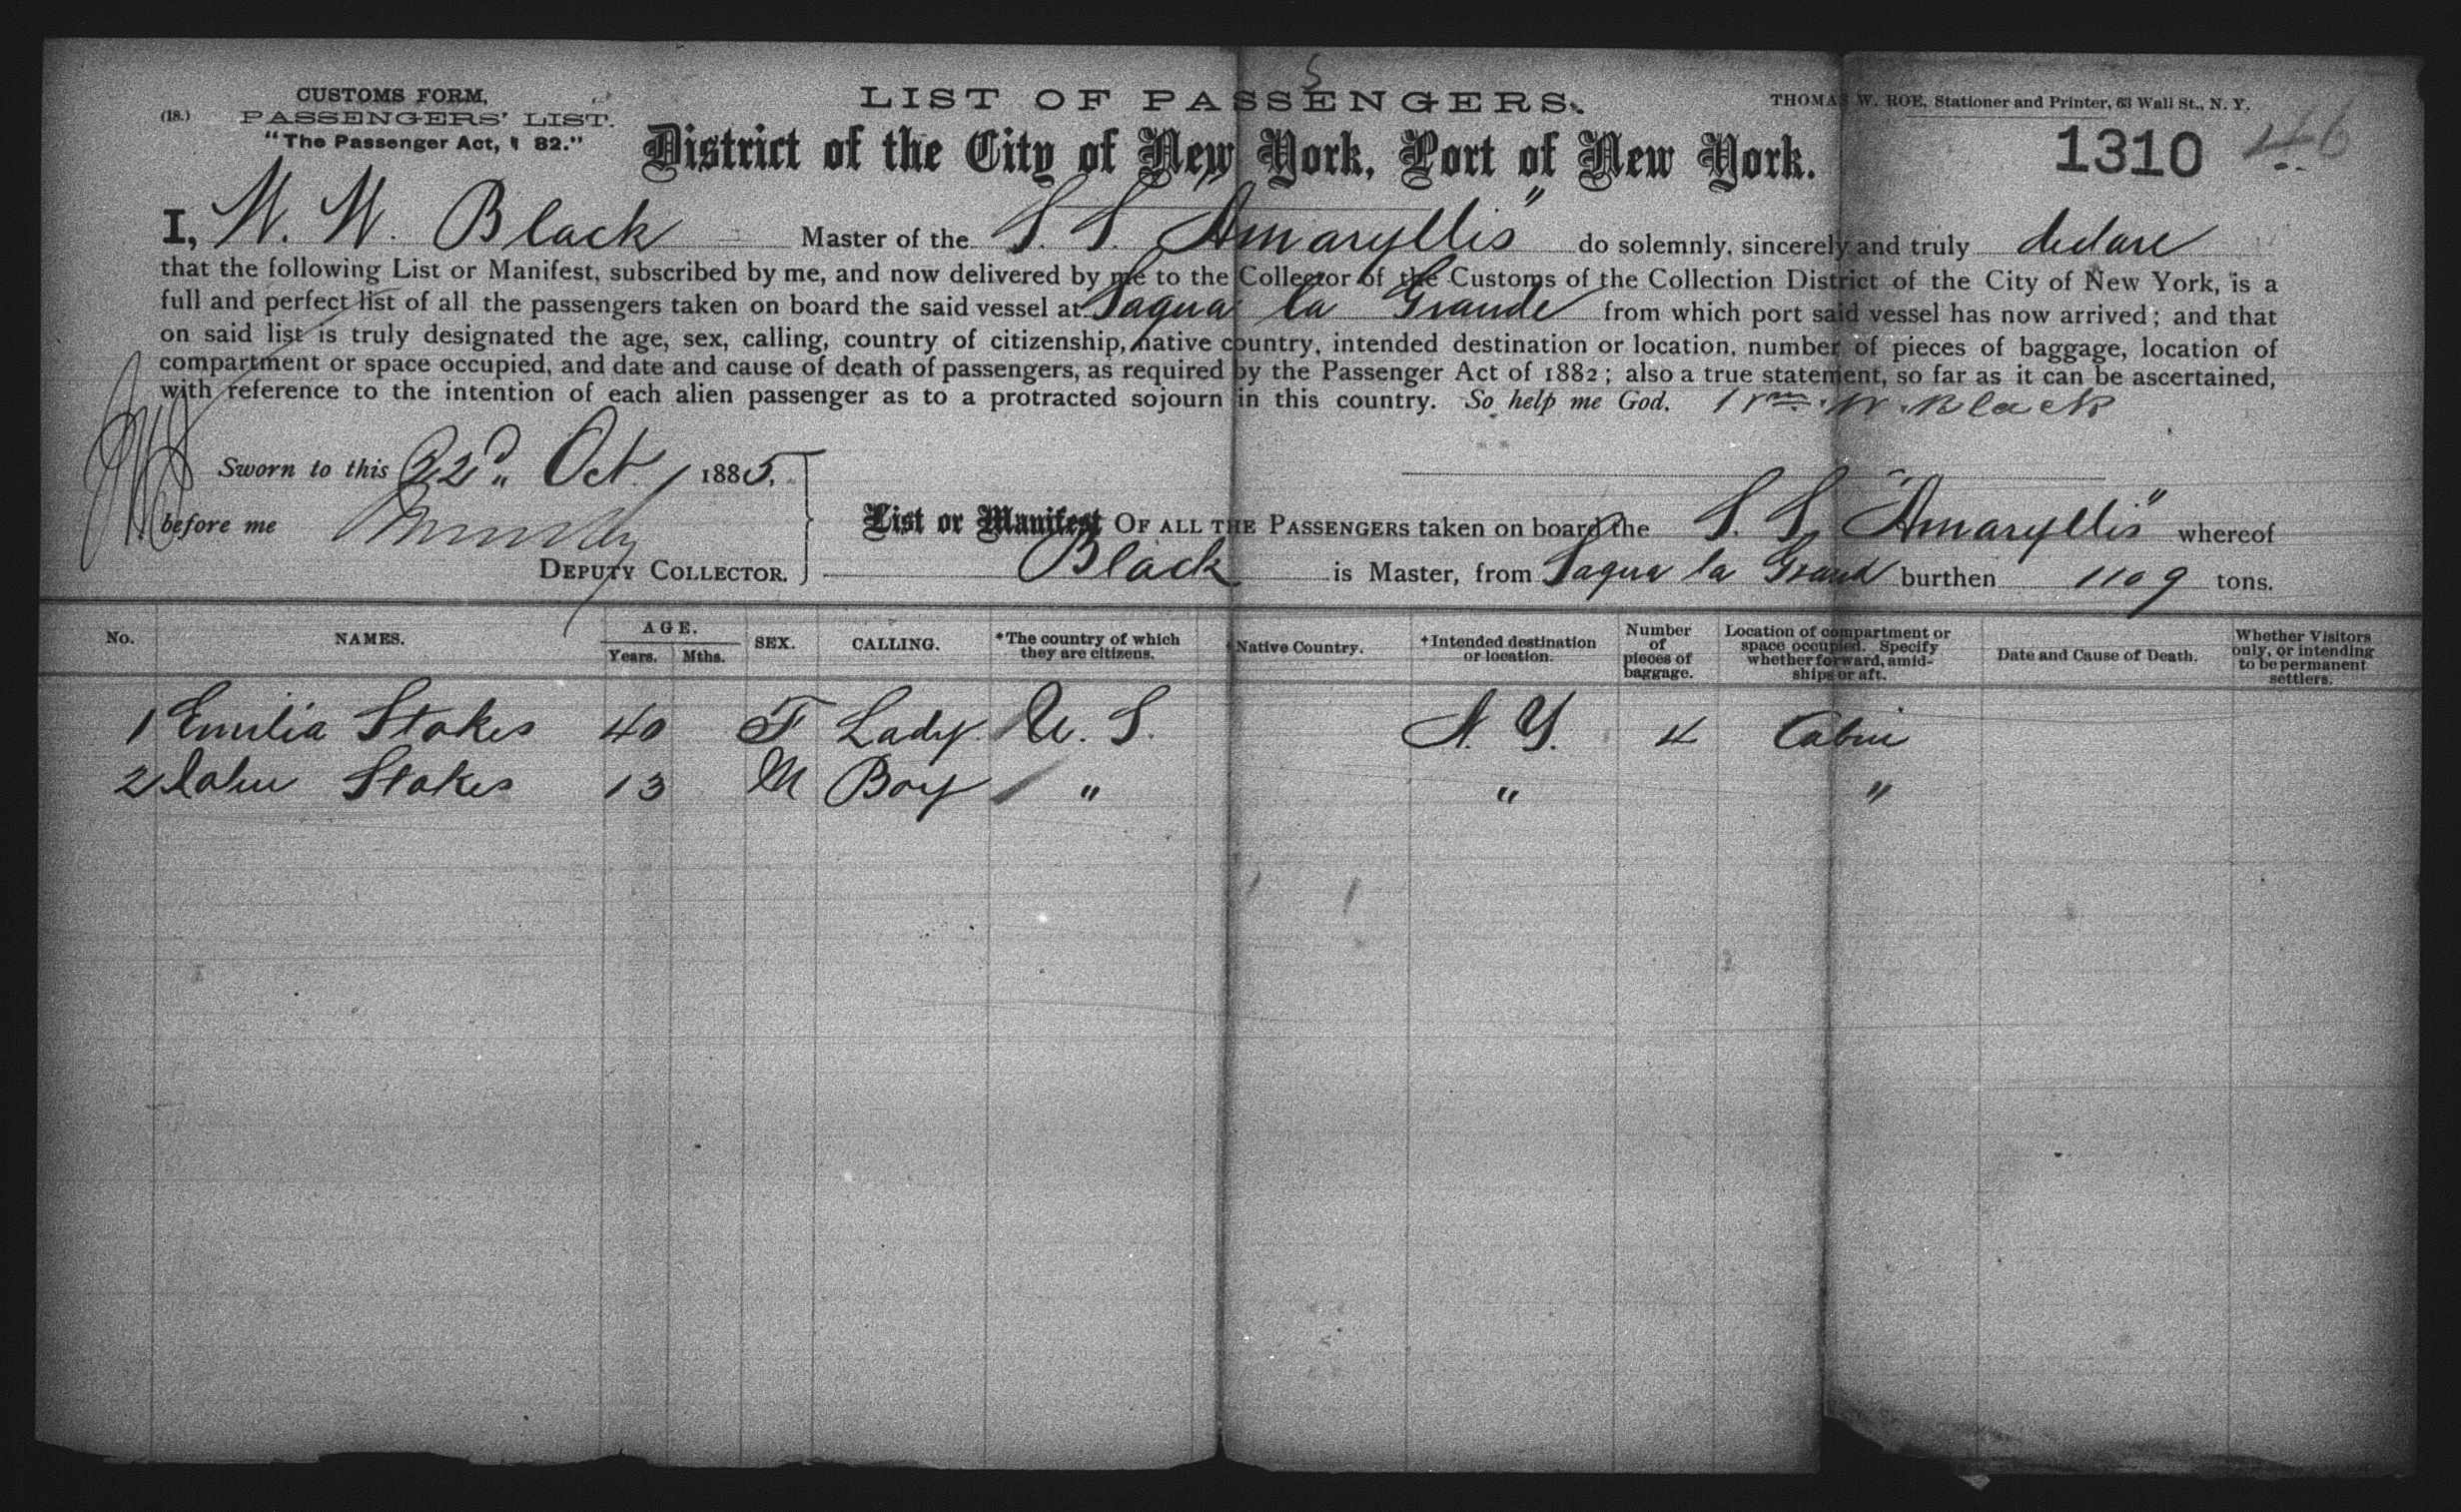 5
CUSTOMS FORM,
LIST OF PASSENGERS.
THOMAS W. ROE, Stationer and Printer, 63 Wall St., N. Y.
(18.) PASSENGERS' LIST.
"The Passenger Act, 1 82."
District of the City of New York, Port of New York.
1310 46
I, W. W. Black Master of the S. S. "Amaryllis" do solemnly, sincerely and truly declare
that the following List or Manifest, subscribed by me, and now delivered by me to the Collector of the Customs of the Collection District of the City of New York, is a
full and perfect list of all the passengers taken on board the said vessel at Sagua la Grande from which port said vessel has now arrived; and that
on said list is truly designated the age, sex, calling, country of citizenship, native country, intended destination or location, number of pieces of baggage, location of
compartment or space occupied, and date and cause of death of passengers, as required by the Passenger Act of 1882; also a true statement, so far as it can be ascertained,
with reference to the intention of each alien passenger as to a protracted sojourn in this country. So help me God. Wm. W. Black
Sworn to this 22d Oct. 1885.
before me
DEPUTY COLLECTOR.
List or Manifest OF ALL THE PASSENGERS taken on board the S. S. "Amaryllis" whereof
Black is Master, from Sagua la Grand burthen 1109 tons.
No. NAMES. AGE. Years. Mths. SEX. CALLING. *The country of which they are citizens. Native Country. +Intended destination or location. Number of pieces of baggage. Location of compartment or space occupied. Specify whether forward, amid-ships or aft. Date and Cause of Death. Whether Visitors only, or intending to be permanent settlers.
1 Emilia Stokes 40 F Lady U. S. N. Y. 4 Cabin
2 John Stokes 13 M Boy " " "